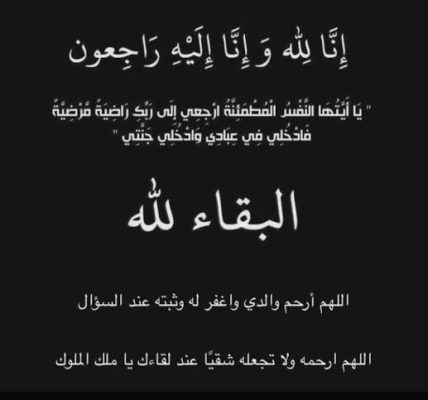 إِنَّا لِلّٰهِ وَ إِنَّا إِلَيْهِ رَاجِعون
" يَا أَيَّتُهَا النَّفْسُ الْمُطْمَئِنَّةُ ارْجِعِي إِلَى رَبِّكِ رَاضِيَةً مَّرْضِيَّةً
فَادْخُلِي فِي عِبَادِي وَادْخُلِي جَنَّتِي "
البقاء لله
اللهم أرحم والدي واغفر له وثبته عند السؤال
اللهم ارحمه ولا تجعله شقيًا عند لقاءك يا ملك الملوك